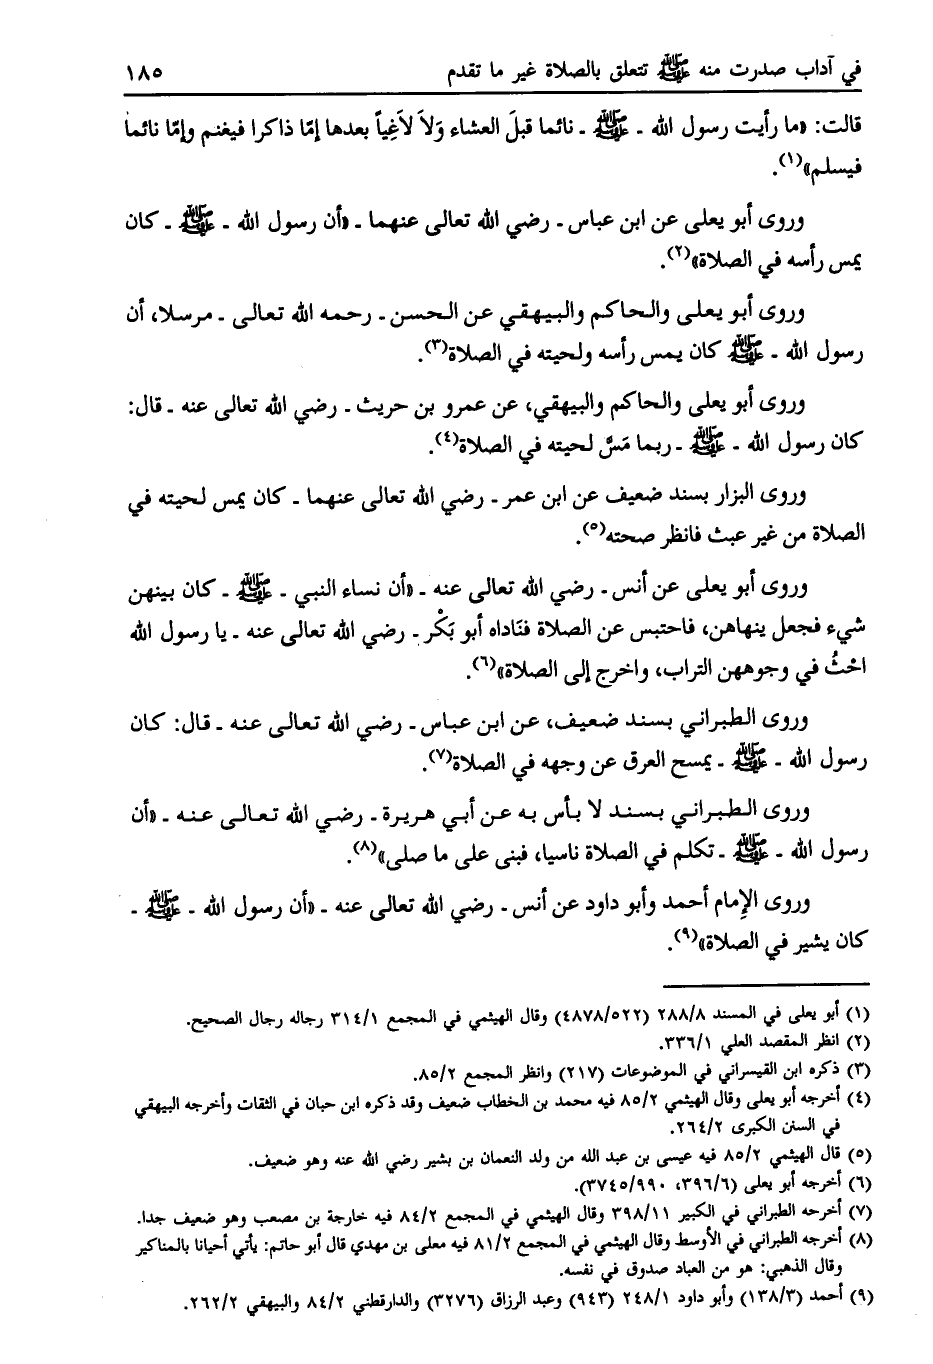 في آداب صدرت منه ﷺ تتعلق بالصلاة غير ما تقدم ١٨٥
قالت: «ما رأيت رسول الله ـ ﷺ ـ نائما قبلَ العشاء وَلاَ لاَغِياً بعدها إمّا ذاكرا فيغنم وإمّا نائما
فيسلم»(١).
وروى أبو يعلى عن ابن عباس ـ رضي الله تعالى عنهما ـ «أن رسول الله ـ ﷺ ـ كان
يمس رأسه في الصلاة»(٢).
وروى أبو يعلى والحاكم والبيهقي عن الحسن ـ رحمه الله تعالى ـ مرسلا، أن
رسول الله ـ ﷺ كان يمس رأسه ولحيته في الصلاة(٣).
وروى أبو يعلى والحاكم والبيهقي، عن عمرو بن حريث ـ رضي الله تعالى عنه ـ قال:
كان رسول الله ـ ﷺ ـ ربما مَسَّ لحيته في الصلاة(٤).
وروى البزار بسند ضعيف عن ابن عمر ـ رضي الله تعالى عنهما ـ كان يمس لحيته في
الصلاة من غير عبث فانظر صحته(٥).
وروى أبو يعلى عن أنس ـ رضي الله تعالى عنه ـ «أن نساء النبي ـ ﷺ ـ كان بينهن
شيء فجعل ينهاهن، فاحتبس عن الصلاة فنَاداه أبو بَكْر ـ رضي الله تعالى عنه ـ يا رسول الله
احْثُ في وجوههن التراب، واخرج إلى الصلاة»(٦).
وروى الطبراني بسند ضعيف، عن ابن عباس ـ رضي الله تعالى عنه ـ قال: كان
رسول الله ـ ﷺ ـ يمسح العرق عن وجهه في الصلاة(٧).
وروى الطبراني بسند لا بأس به عن أبي هريرة ـ رضي الله تعالى عنه ـ «أن
رسول الله ـ ﷺ ـ تكلم في الصلاة ناسيا، فبنى على ما صلى»(٨).
وروى الإمام أحمد وأبو داود عن أنس ـ رضي الله تعالى عنه ـ «أن رسول الله ـ ﷺ ـ
كان يشير في الصلاة»(٩).
(١) أبو يعلى في المسند ٢٨٨/٨ (٤٨٧٨/٥٢٢) وقال الهيثمي في المجمع ٣١٤/١ رجاله رجال الصحيح.
(٢) انظر المقصد العلي ٣٣٦/١.
(٣) ذكره ابن القيسراني في الموضوعات (٢١٧) وانظر المجمع ٨٥/٢.
(٤) أخرجه أبو يعلى وقال الهيثمي ٨٥/٢ فيه محمد بن الخطاب ضعيف وقد ذكره ابن حبان في الثقات وأخرجه البيهقي
في السنن الكبرى ٢٦٤/٢.
(٥) قال الهيثمي ٨٥/٢ فيه عيسى بن عبد الله من ولد النعمان بن بشير رضي الله عنه وهو ضعيف.
(٦) أخرجه أبو يعلى (٣٩٦/٦، ٣٧٤٥/٩٩٠).
(٧) أخرحه الطبراني في الكبير ٣٩٨/١١ وقال الهيثمي في المجمع ٨٤/٢ فيه خارجة بن مصعب وهو ضعيف جدا.
(٨) أخرجه الطبراني في الأوسط وقال الهيثمي في المجمع ٨١/٢ فيه معلى بن مهدي قال أبو حاتم: يأتي أحيانا بالمناكير
وقال الذهبي: هو من العباد صدوق في نفسه.
(٩) أحمد (١٣٨/٣) وأبو داود ٢٤٨/١ (٩٤٣) وعبد الرزاق (٣٢٧٦) والدارقطني ٨٤/٢ والبيهقي ٢٦٢/٢.